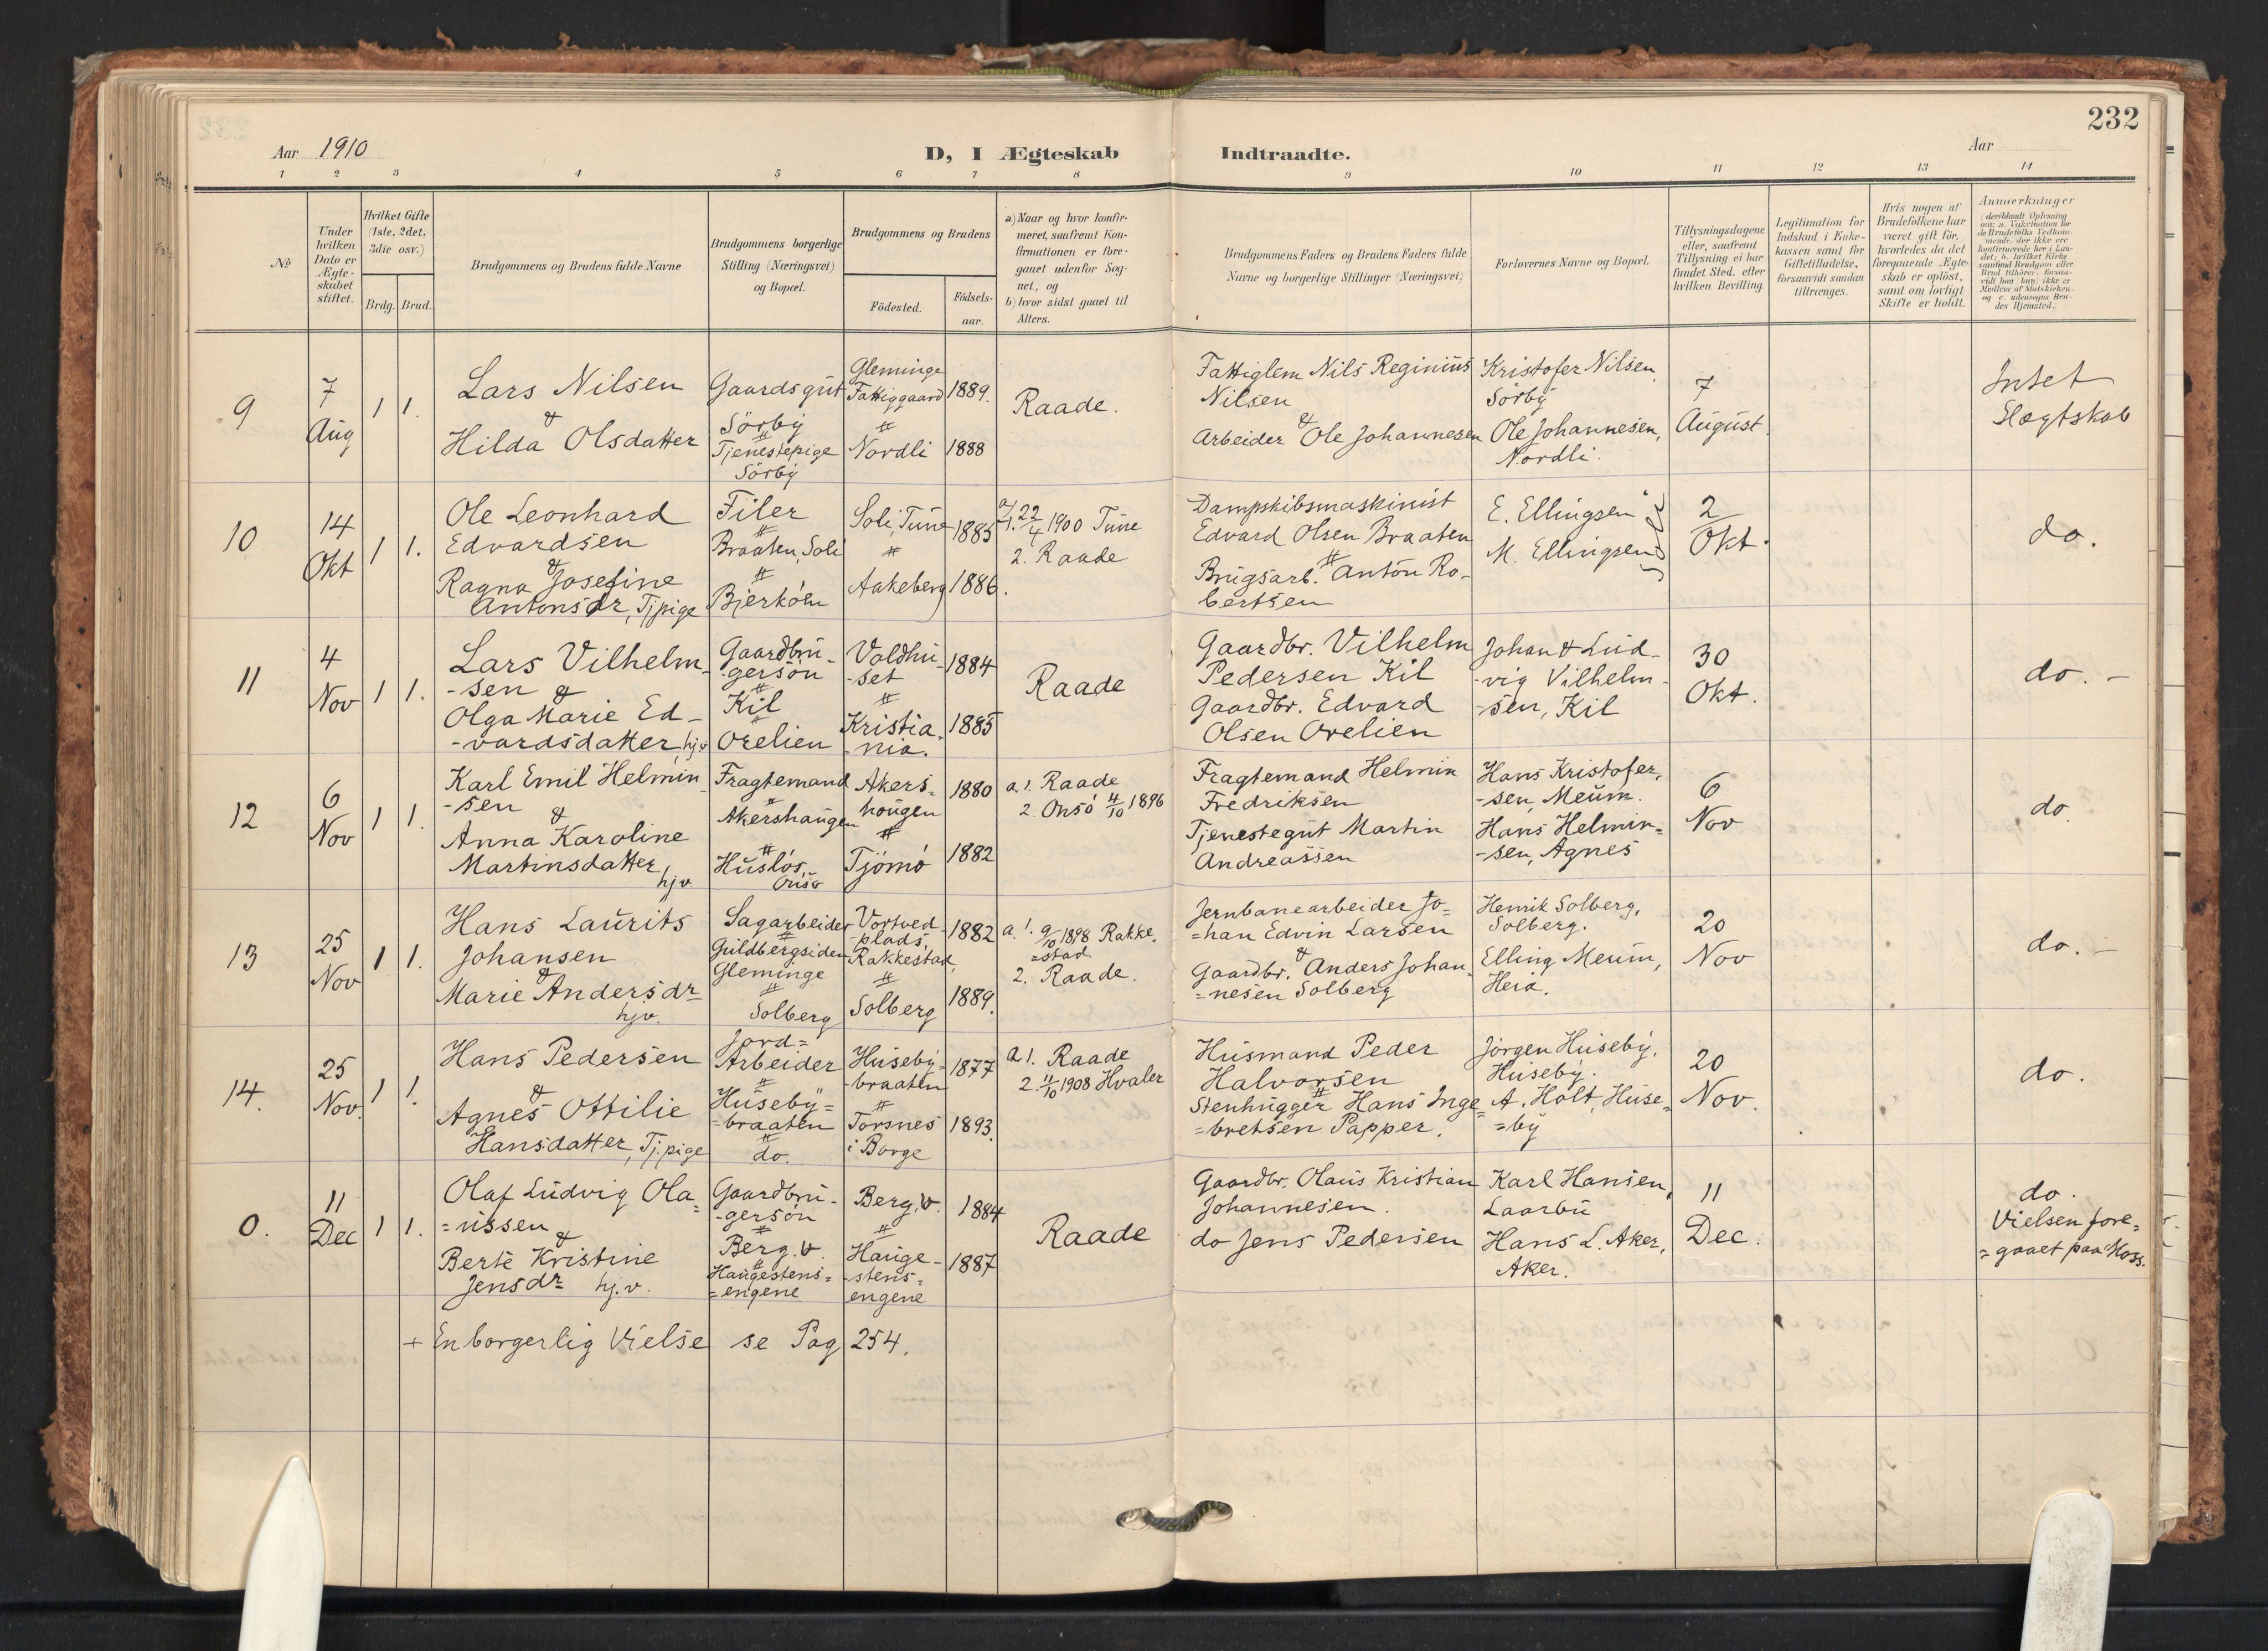 232
Aar 1910
D, I Ægteskab Indtraadte.
Aar
1 2 3 4 5 6 7 8 9 10 11 12 13 14
No
Under hvilken Dato er Ægteskabet stiftet.
Hvilket Gifte (1ste, 2det, 3die osv.)
Brdg. Brud.
Brudgommens og Brudens fulde Navne
Brudgommens borgerlige Stilling (Næringsvei) og Bopæl.
Brudgommens og Brudens
Födested.
Födsels-aar.
a) Naar og hvor konfirmeret, saafremt Konfirmationen er foregaaet udenfor Sognet, og
b) hvor sidst gaaet til Alters.
Brudgommens Faders og Brudens Faders fulde Navne og borgerlige Stillinger (Næringsvei)
Forlovernes Navne og Bopæl.
Tillysningsdagene eller, saafremt Tillysning ei har fundet Sted, efter hvilken Bevilling.
Legitimation for Indskud i Enkekassen samt for Giftetilladelse, forsaavidt saadan tiltrænges.
Hvis nogen af Brudefolkene har været gift för, hvorledes da det foregaaende Ægteskab er oplöst, samt om lovligt Skifte er holdt.
Anmerkninger
9
7
Aug
1 1.
Lars Nilsen
&
Hilda Olsdatter
Gaardsgut
Sörby
"
Tjenestepige
Sörby
Gleminge
Fattiggaard
"
Nordli
1889.
1888
Raade.
Fattiglem Nils Reginius
Nilsen
&
Arbeider Ole Johannesen
Kristofer Nilsen,
Sörby
Ole Johannesen,
Nordli.
7
August.
Intet
Slægtskab
10
14
Okt
1 1.
Ole Leonhard
Edvardsen
&
Ragna Josefine
Antonsdr, Tjpige
Filer
"
Braaten, Soli
"
Bjerköen
Soli, Tune
"
Aakeberg
1885
1886.
a/1. 22/4 1900 Tune
2. Raade
Dampskibsmaskinist
Edvard Olsen Braaten
"
Brugsarb. Anton Ro-
bertsen
E. Ellingsen
M. Ellingsen
2
Okt.
do.
11
4
Nov
1 1.
Lars Vilhelm-
-sen &
Olga Marie Ed-
-vardsdatter, hjv
Gaardbru-
-gersön
"
Kil
"
Orelien
Voldhu-
-set
"
Kristia-
-nia.
1884
1885
Raade
Gaardbr. Vilhelm
Pedersen Kil
Gaardbr. Edvard
Olsen Orelien
Johan & Lud-
-vig Vilhelm-
-sen, Kil
30
Okt.
do. -
12
6
Nov
1 1.
Karl Emil Helmin-
-sen &
Anna Karoline
Martinsdatter,
hjv
Fragtemand
"
Akershaugen
"
Huslös,
Onsö
Akers-
hougen
"
Tjömö
1880
1882
a. 1. Raade
2. Onsö 4/10 1896
Fragtemand Helmin
Fredriksen
Tjenestegut Martin
Andreassen
Hans Kristofer-
-sen, Meum.
Hans Helmin-
-sen, Agnes
6
Nov
do.
13
25
Nov
1 1.
Hans Laurits
Johansen
&
Marie Andersdr
hjv.
Sagarbeider
"
Guldbergsiden
Gleminge
"
Solberg
Vortved-
-plads,
Rakkestad,
"
Solberg
1882
1889.
a. 1. 9/10 1898 Rakke-
=stad
2. Raade.
Jernbanearbeider Jo=
=han Edvin Larsen
&
Gaardbr. Anders Johan-
=nesen Solberg
Henrik Solberg,
Solberg.
Elling Meum,
Heia.
20
Nov
do. -
14.
25
Nov.
1 1.
Hans Pedersen
&
Agnes Ottilie
Hansdatter, Tj.pige
Jord=
Arbeider
"
Huseby=
=braaten
"
do.
Huseby-
-braaten
"
Torsnes
i Borge
1877
1893.
a 1. Raade
2. 11/10 1908 Hvaler
Husmand Peder
Halvorsen
"
Stenhugger Hans Inge=
=bretsen Papper.
Jörgen Huseby,
Huseby.
A. Holt, Huse=
=by
20
Nov.
do.
0.
11
Dec
1 1.
Olaf Ludvig Ola=
=ussen
&
Berte Kristine
Jensdr hj.v.
Gaardbru-
-gersön
"
Berg. v.
"
Haugestens=
=engene
Berg. v.
"
Hauge-
-stens=
engene
1884
1887
Raade
Gaardbr. Olaus Kristian
Johannesen.
do Jens Pedersen
Karl Hansen,
Laarbu
Hans L. Aker,
Aker.
11
Dec.
do.
Vielsen fore=
=gaaet paa Moss.
+ En borgerlig Vielse se Pag 254.